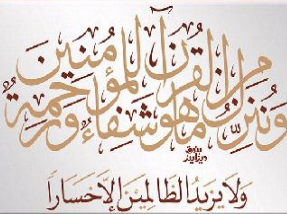 وَنُنَزِّلُ مِنَ الْقُرْآنِ مَا هُوَ شِفَاءٌ وَرَحْمَةٌ لِّلْمُؤْمِنِينَ
وَلَا يَزِيدُ الظَّالِمِينَ إِلَّا خَسَارًا